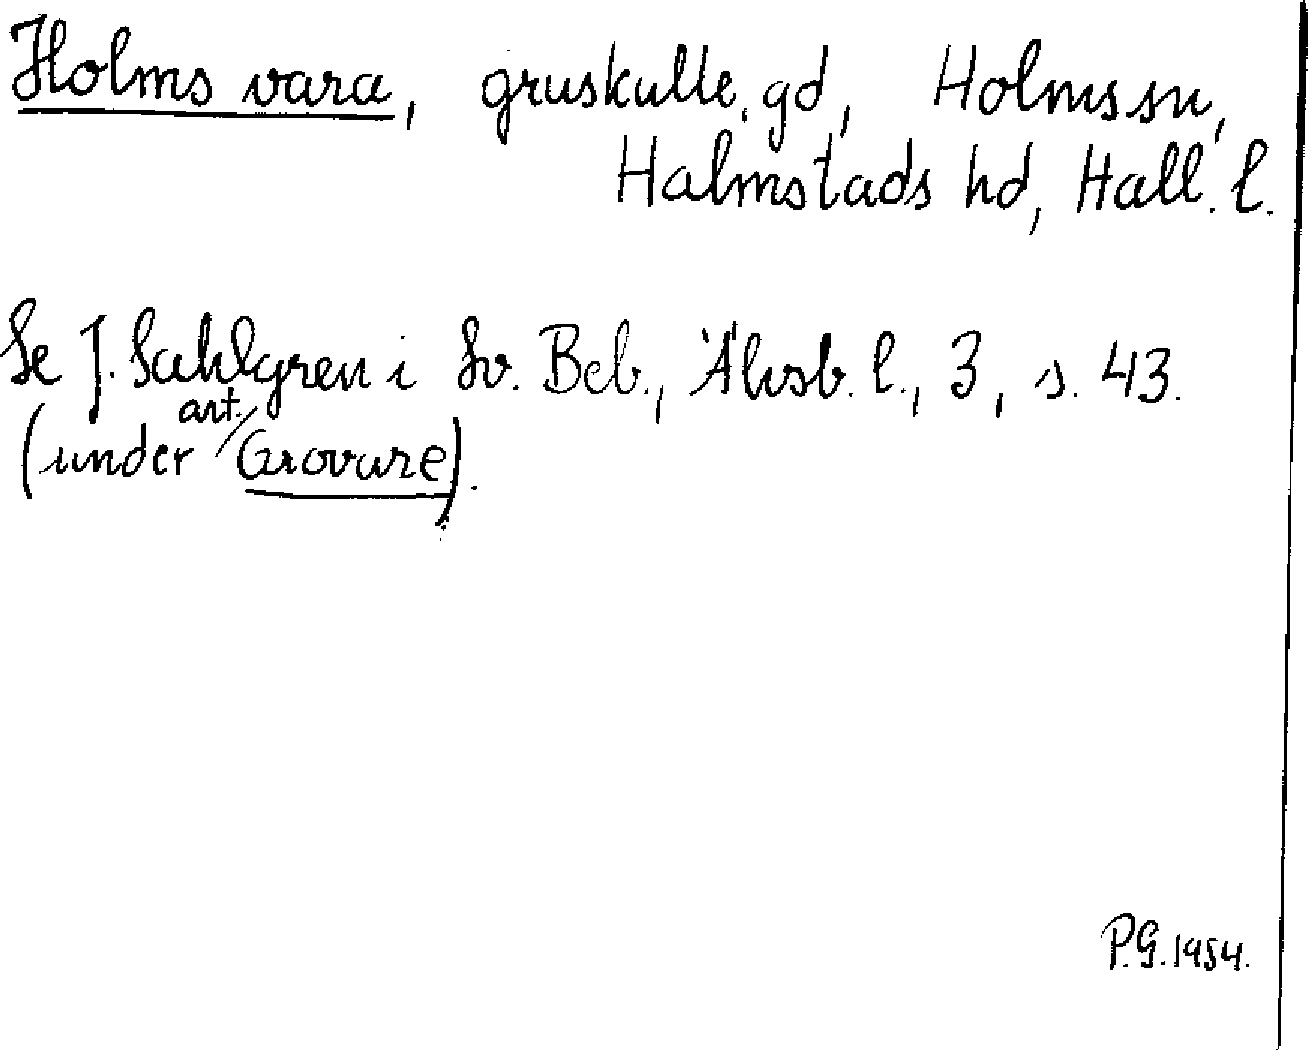 Holms vara, gruskulle, gd, Holms sn,
Halmstads hd, Hall. l.
Se J. Sahlgren i Sv. Beb., Älvsb. l., 3, s. 43.
(under art. Grovare).
P.G. 1954.